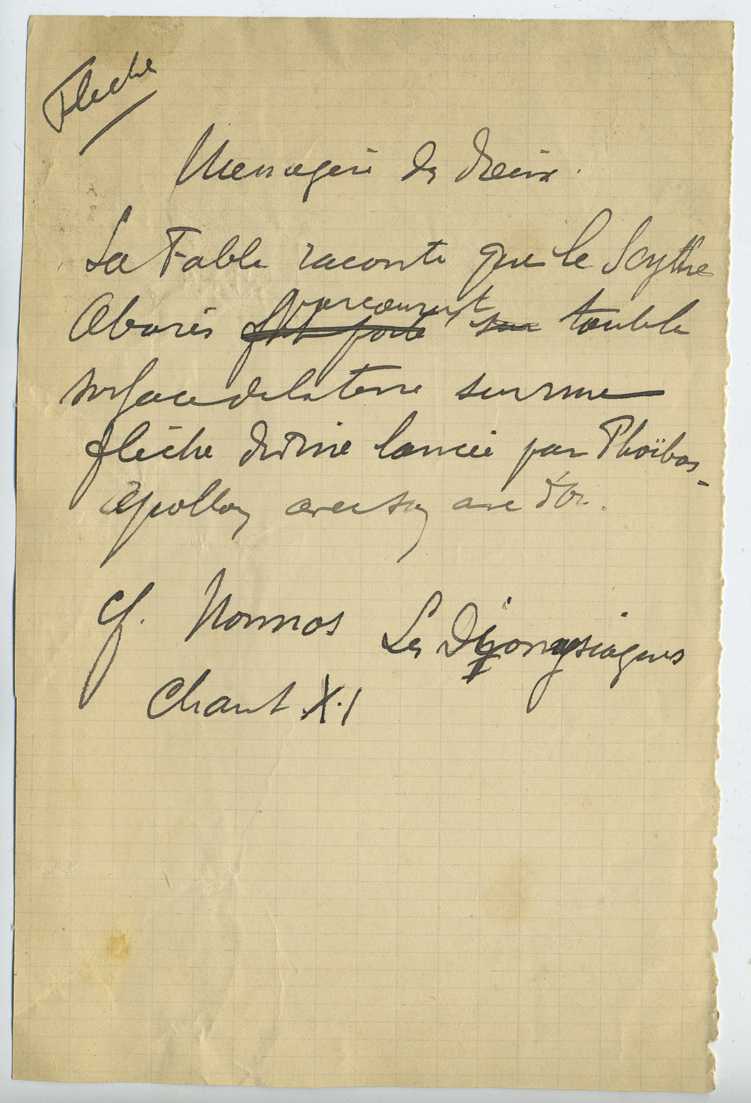 Flèche
Messagère des Dieux.
La Fable raconte que le Scythe
parcourut
Abaris fut porté sur toute la
surface de la terre sur une
flèche divine lancée par Phoïbos-
Apollon avec son arc d'Or.
Cf. Nonnos Les Dionysiaques
Chant XI